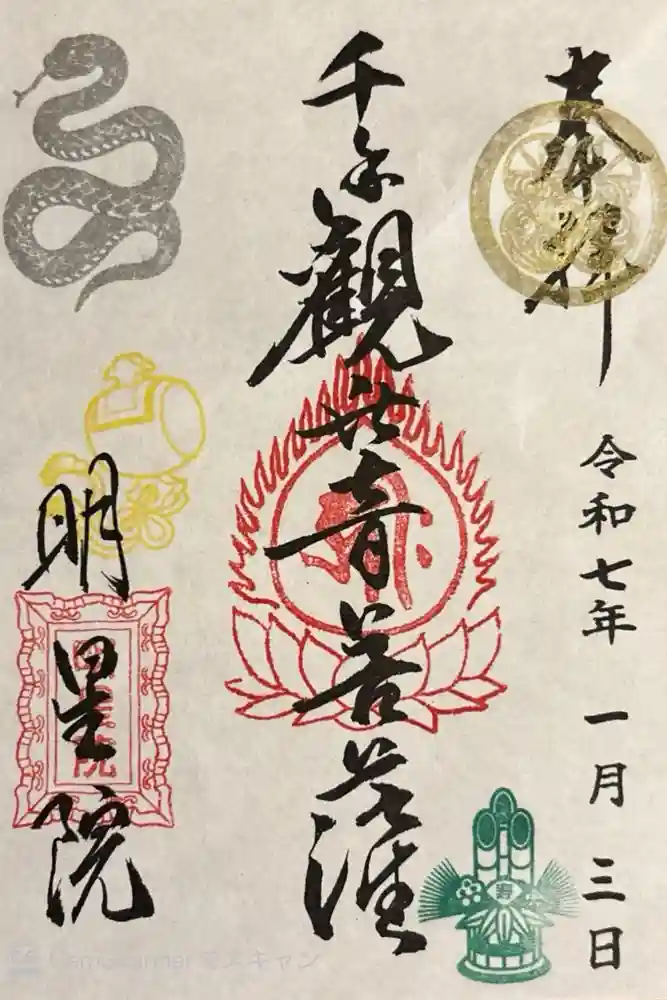 奉拝
令和七年 一月 三日
千手觀世音菩薩
明星院
寿
CamScanner でスキャン